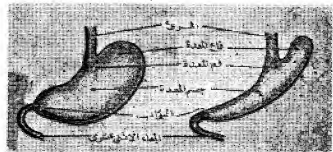 المرئ
قاع المعدة
فم المعدة
جسم المعدة
البواب
المعاء الاثنى عشرى